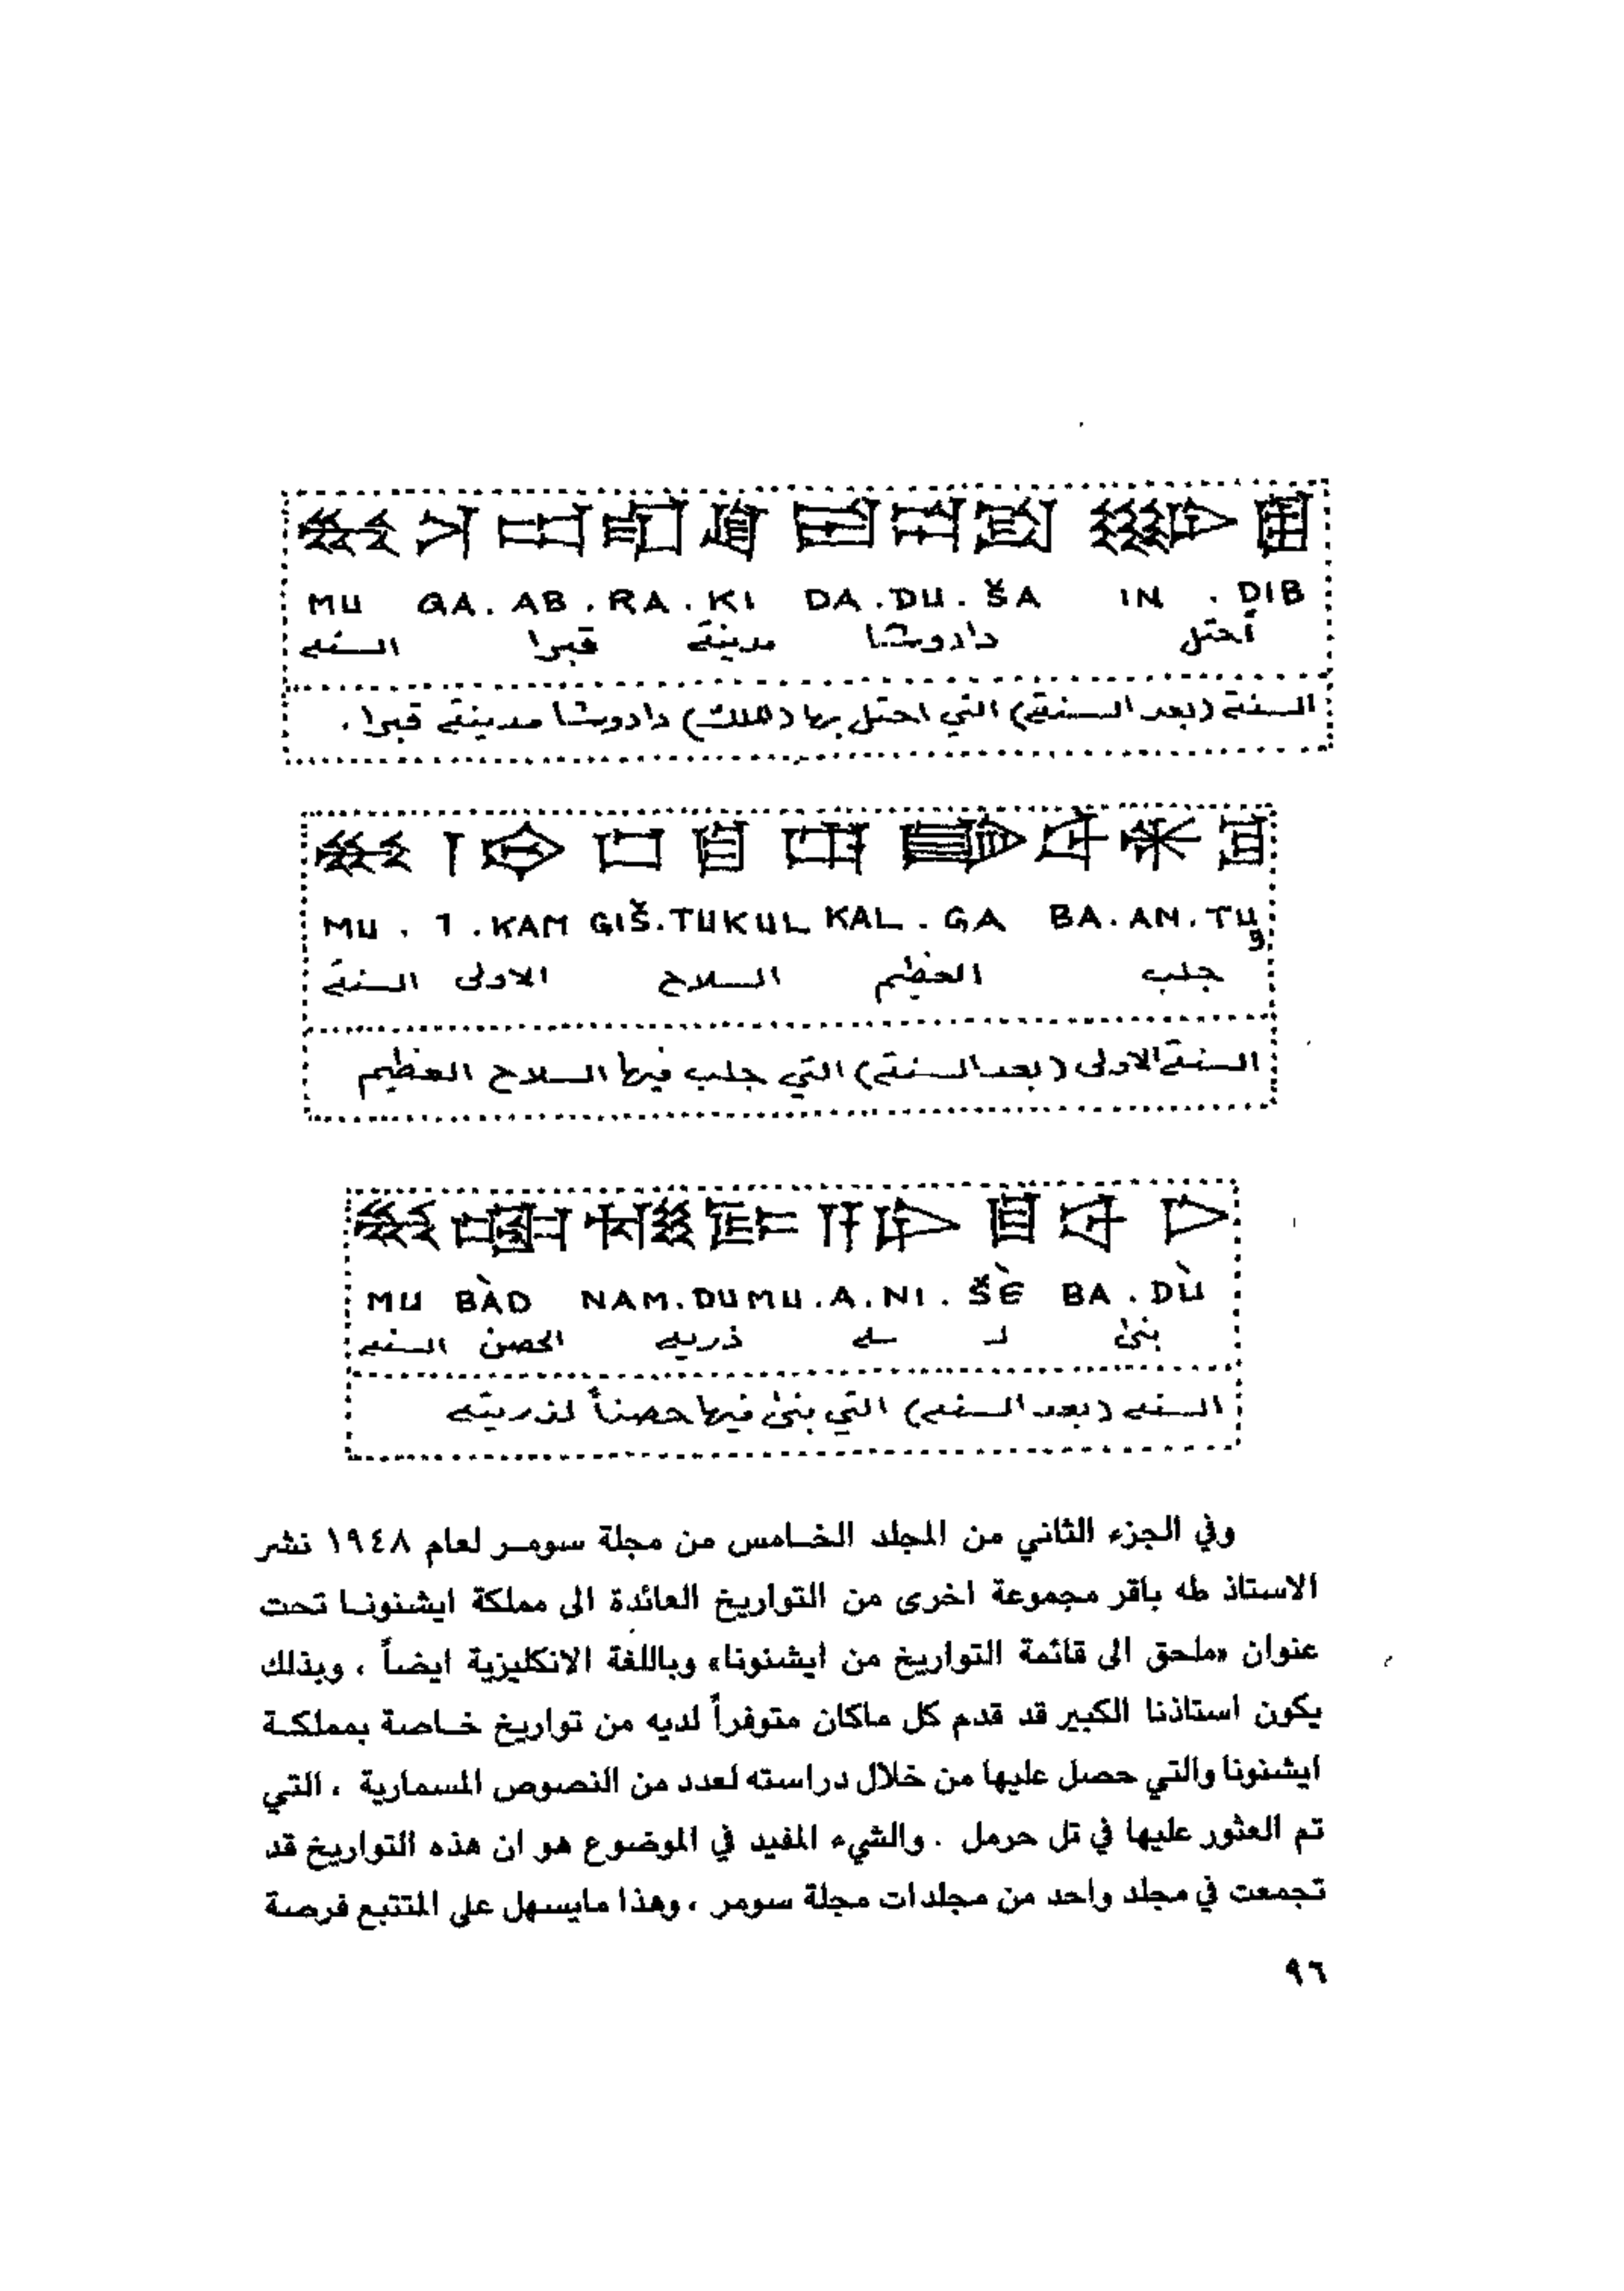 MU GA.AB.RA.KI DA.DU.ŠA IN.DIB
السنه قبرا مدينة دادوشا أحتل
السنة (بعد السنة) التي احتل بها (الملك) دادوشا مدينة قبرا .
MU.1.KAM GIŠ.TUKUL KAL.GA BA.AN.TU9
السنة الاولى السلاح العظيم جلب
السنة الاولى (بعد السنة) التي جلب فيها السلاح العظيم
MU BÀD NAM.DUMU.A.NI.ŠÈ BA.DÙ
السنه الحصن ذريه ـه لـ بنى
السنه (بعد السنه) التي بنى فيها حصناً لذريته
وفي الجزء الثاني من المجلد الخامس من مجلة سومر لعام ١٩٤٨ نشر
الاستاذ طه باقر مجموعة اخرى من التواريخ العائدة الى مملكة ايشنونا تحت
عنوان «ملحق الى قائمة التواريخ من ايشنونا» وباللغة الانكليزية ايضاً ، وبذلك
يكون استاذنا الكبير قد قدم كل ماكان متوفراً لديه من تواريخ خاصة بمملكة
ايشنونا والتي حصل عليها من خلال دراسته لعدد من النصوص المسمارية ، التي
تم العثور عليها في تل حرمل . والشيء المفيد في الموضوع هو ان هذه التواريخ قد
تجمعت في مجلد واحد من مجلدات مجلة سومر ، وهذا مايسهل على المتتبع فرصة
٩٦